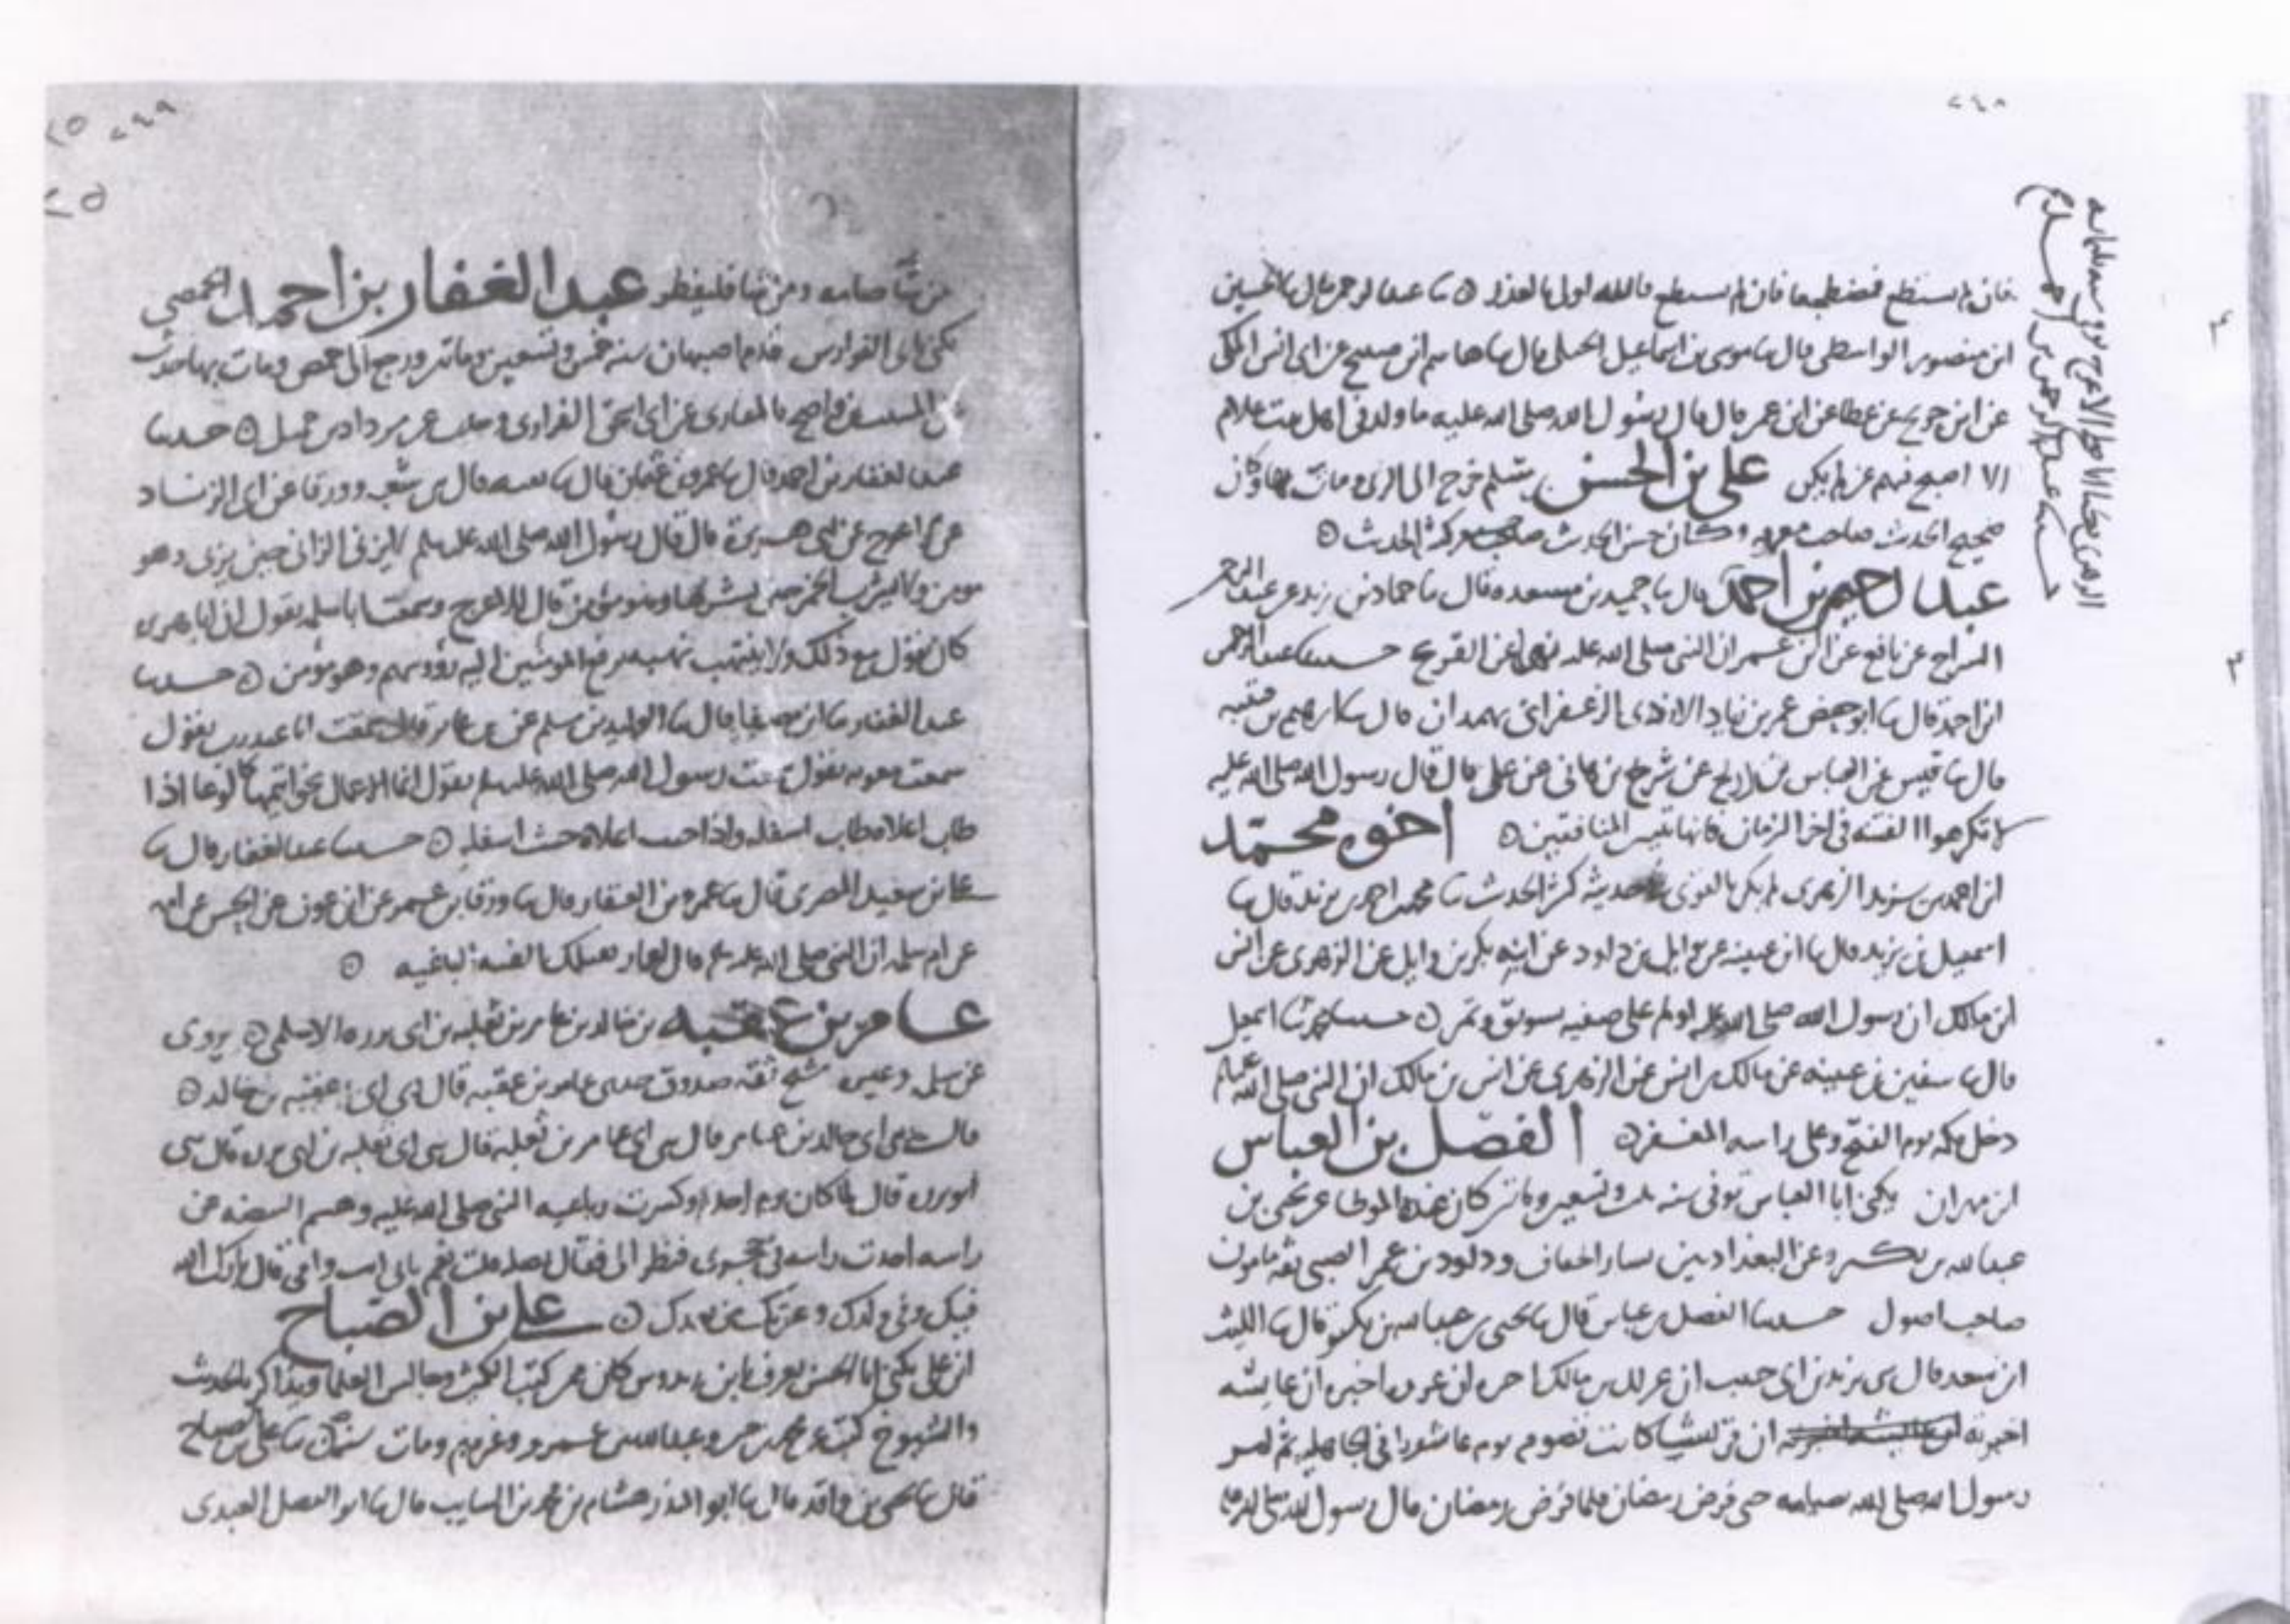 ٢٤٨
فان لم يستطع فمضطجعا فان لم يستطع فالله اولى بالعذر ۞ ثنا عبد الرحمن قال ثنا الحسين
ابن منصور الواسطي قال ثنا موسى بن اسماعيل الجبلي قال ثنا هاشم بن صبيح عن ابي انس المكي
عن ابن جريج عن عطا عن ابن عمر قال قال رسول الله صلى الله عليه ما ولد في اهل بيت غلام
الا اصبح فيهم عز لم يكن علي بن الحسن بن سلم خرج الى الري ومات بها وكان
صحيح الحديث صاحب معرفه وكان حسن الحديث كثير الحديث ۞
عبد الرحيم بن احمد قال ثنا حميد بن مسعده قال ثنا حماد بن زيد عن عبد الرحمن
السراج عن نافع عن ابن عمر ان النبي صلى الله عليه نهى عن القزع حدثنا عبد الرحمن
ابن احمد قال ثنا ابو حفص عمر بن الازدي الزعفراني بهمدان قال ثنا ابرهيم بن قتيبه
قال ثنا قيس عن العباس بن ذريح عن شريح بن هاني عن علي قال قال رسول الله صلى الله عليه
لا تكرهوا الفتنه في اخر الزمان فانها تبير المنافقين ۞ اخوه محمد
ابن احمد بن يزيد الزهري لم يكن بالقوي في حديثه كثير الحديث ثنا محمد بن احمد بن يزيد قال ثنا
اسمعيل بن يزيد قال ثنا ابن عيينه عن وايل بن داود عن ابنه بكر بن وايل عن الزهري عن انس
ابن مالك ان رسول الله صلى الله عليه اولم على صفيه بسويق وتمر ۞ حدثنا محمد ثنا اسمعيل
قال ثنا سفين بن عيينه عن مالك بن انس عن الزهري عن انس بن مالك ان النبي صلى الله عليه
دخل مكه يوم الفتح وعلى راسه المغفر ۞ الفضل بن العباس
ابن مهران يكنى ابا العباس توفي سنه ثلث وتسعين وماتين كان عنده الموطا عن يحيى بن
عبد الله بن بكير وعن البغداديين بشار الخفاف وداود بن عمر الضبي ثقه مامون
صاحب اصول حدثنا الفضل بن عباس قال ثنا يحيى بن عبد الله بن بكير قال ثنا الليث
ابن سعد قال حدثني يزيد بن ابي حبيب ان عراك بن مالك اخبره ان عروه اخبره ان عايشه
اخبرته ان قريشا كانت تصوم يوم عاشورا في الجاهليه ثم امر
رسول الله صلى الله صيامه حتى فرض رمضان فلما فرض رمضان قال رسول الله صلى الله عليه
٢٤٩
٢٥
٢٥
من شا صامه ومن شا فليفطر عبد الغفار بن احمد الحمصي
يكنى ابي الفوارس قدم اصبهان سنه خمس وتسعين وماتين ورجع الى حمص ومات بها حدث
عن المسيب بن واضح بالمغازي عن ابي اسحق الفزاري ۞ حدثنا
عبد الغفار بن احمد قال ثنا عمرو بن عثمان قال ثنا بقيه قال حدثني شعبه وورقا عن ابي الزناد
عن الاعرج عن ابي هريرة قال قال رسول الله صلى الله عليه وسلم لا يزني الزاني حين يزني وهو
مومن ولا يشرب الخمر حين يشربها وهو مؤمن قال الاعرج وسمعت ابا سلمه يقول ان ابا هريره
كان يقول مع ذلك ولا ينتهب نهبه يرفع المومنين اليه رؤوسهم وهو مؤمن ۞ حدثنا
عبد الغفار ثنا ابن مصفا قال ثنا الوليد بن مسلم عن بن جابر قال سمعت ابا عبد رب يقول
سمعت معويه يقول سمعت رسول الله صلى الله عليه وسلم يقول انما الاعمال بخواتيمها كالوعا اذا
طاب اعلاه طاب اسفله واذا خبث اعلاه خبث اسفله ۞ حدثنا عبد الغفار قال ثنا
بن سعيد المصري قال ثنا عمرو بن الغفار قال ثنا ورقا بن عمر عن ابن عون عن الحسن عن امه
عن ام سلمه ان النبي صلى الله عليه وسلم قال لعمار تقتلك الفئه الباغيه ۞
عامر بن عقبه بن خالد بن عامر بن ثعلبه بن ابي برزه الاسلمي ۞ يروي
عن سلمه وغيره شيخ ثقه صدوق حدثني عامر بن عقبه قال حدثني ابي عقبه بن خالد ۞
قال حدثني ابي خالد بن عامر قال حدثني ابي عامر بن ثعلبه قال حدثني ابي ثعلبه بن ابي برزه قال حدثني
ابو برزه قال لما كان يوم احد وكسرت رباعيه النبي صلى الله عليه وهشم البيضه عن
راسه اخذت راسه في حجري فنظر الي فقال قلت نعم بابي انت وامي قال بارك الله
فيك وفي ولدك وعترتك من بعدك ۞ علي بن الصباح
ابن علي يكنى ابا الحسن يعرف بابن كان ممن كتب الكثير وجالس العلما وذاكر بالحديث
والشيوخ كتب عن محمد بن وعبد الله بن عمر وغيرهم ومات سنة ثنا علي بن الصباح
قال ثنا يحيى بن واقد قال ثنا ابو المنذر هشام بن محمد بن السايب قال ثنا ابو الفضل العبدي